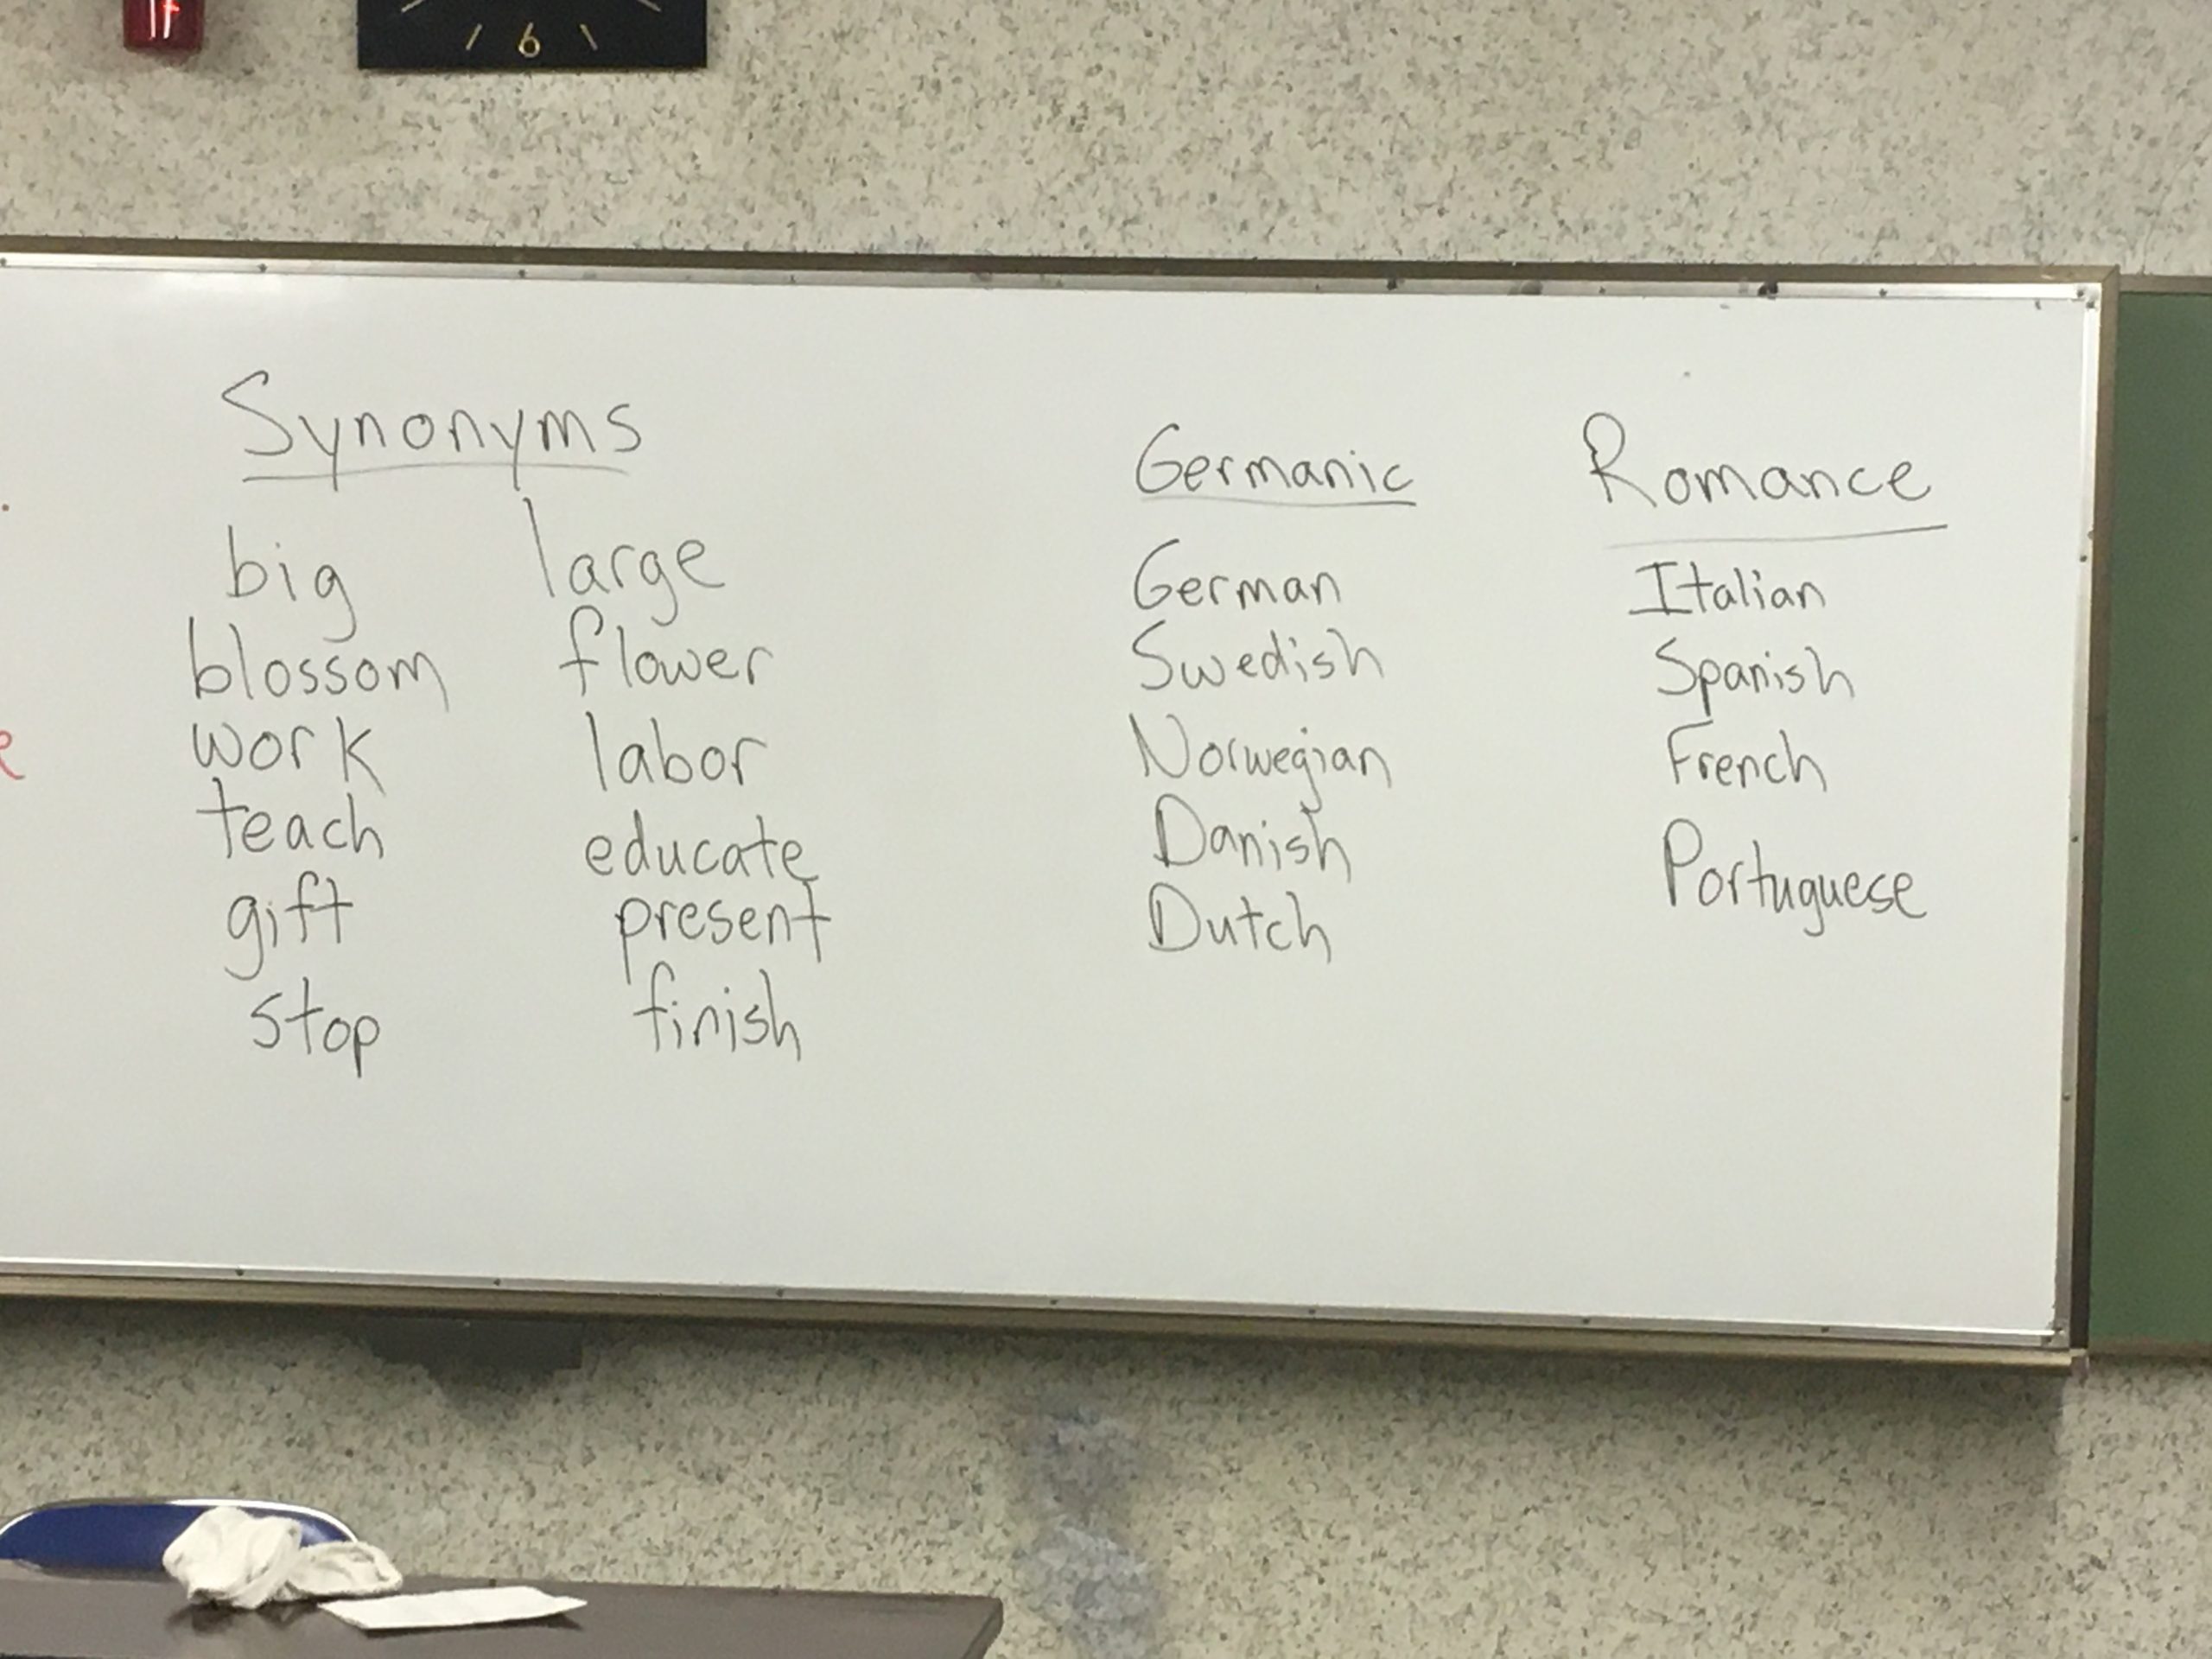 6
Synonyms
big large
blossom flower
work labor
teach educate
gift present
stop finish
Germanic
German
Swedish
Norwegian
Danish
Dutch
Romance
Italian
Spanish
French
Portuguese